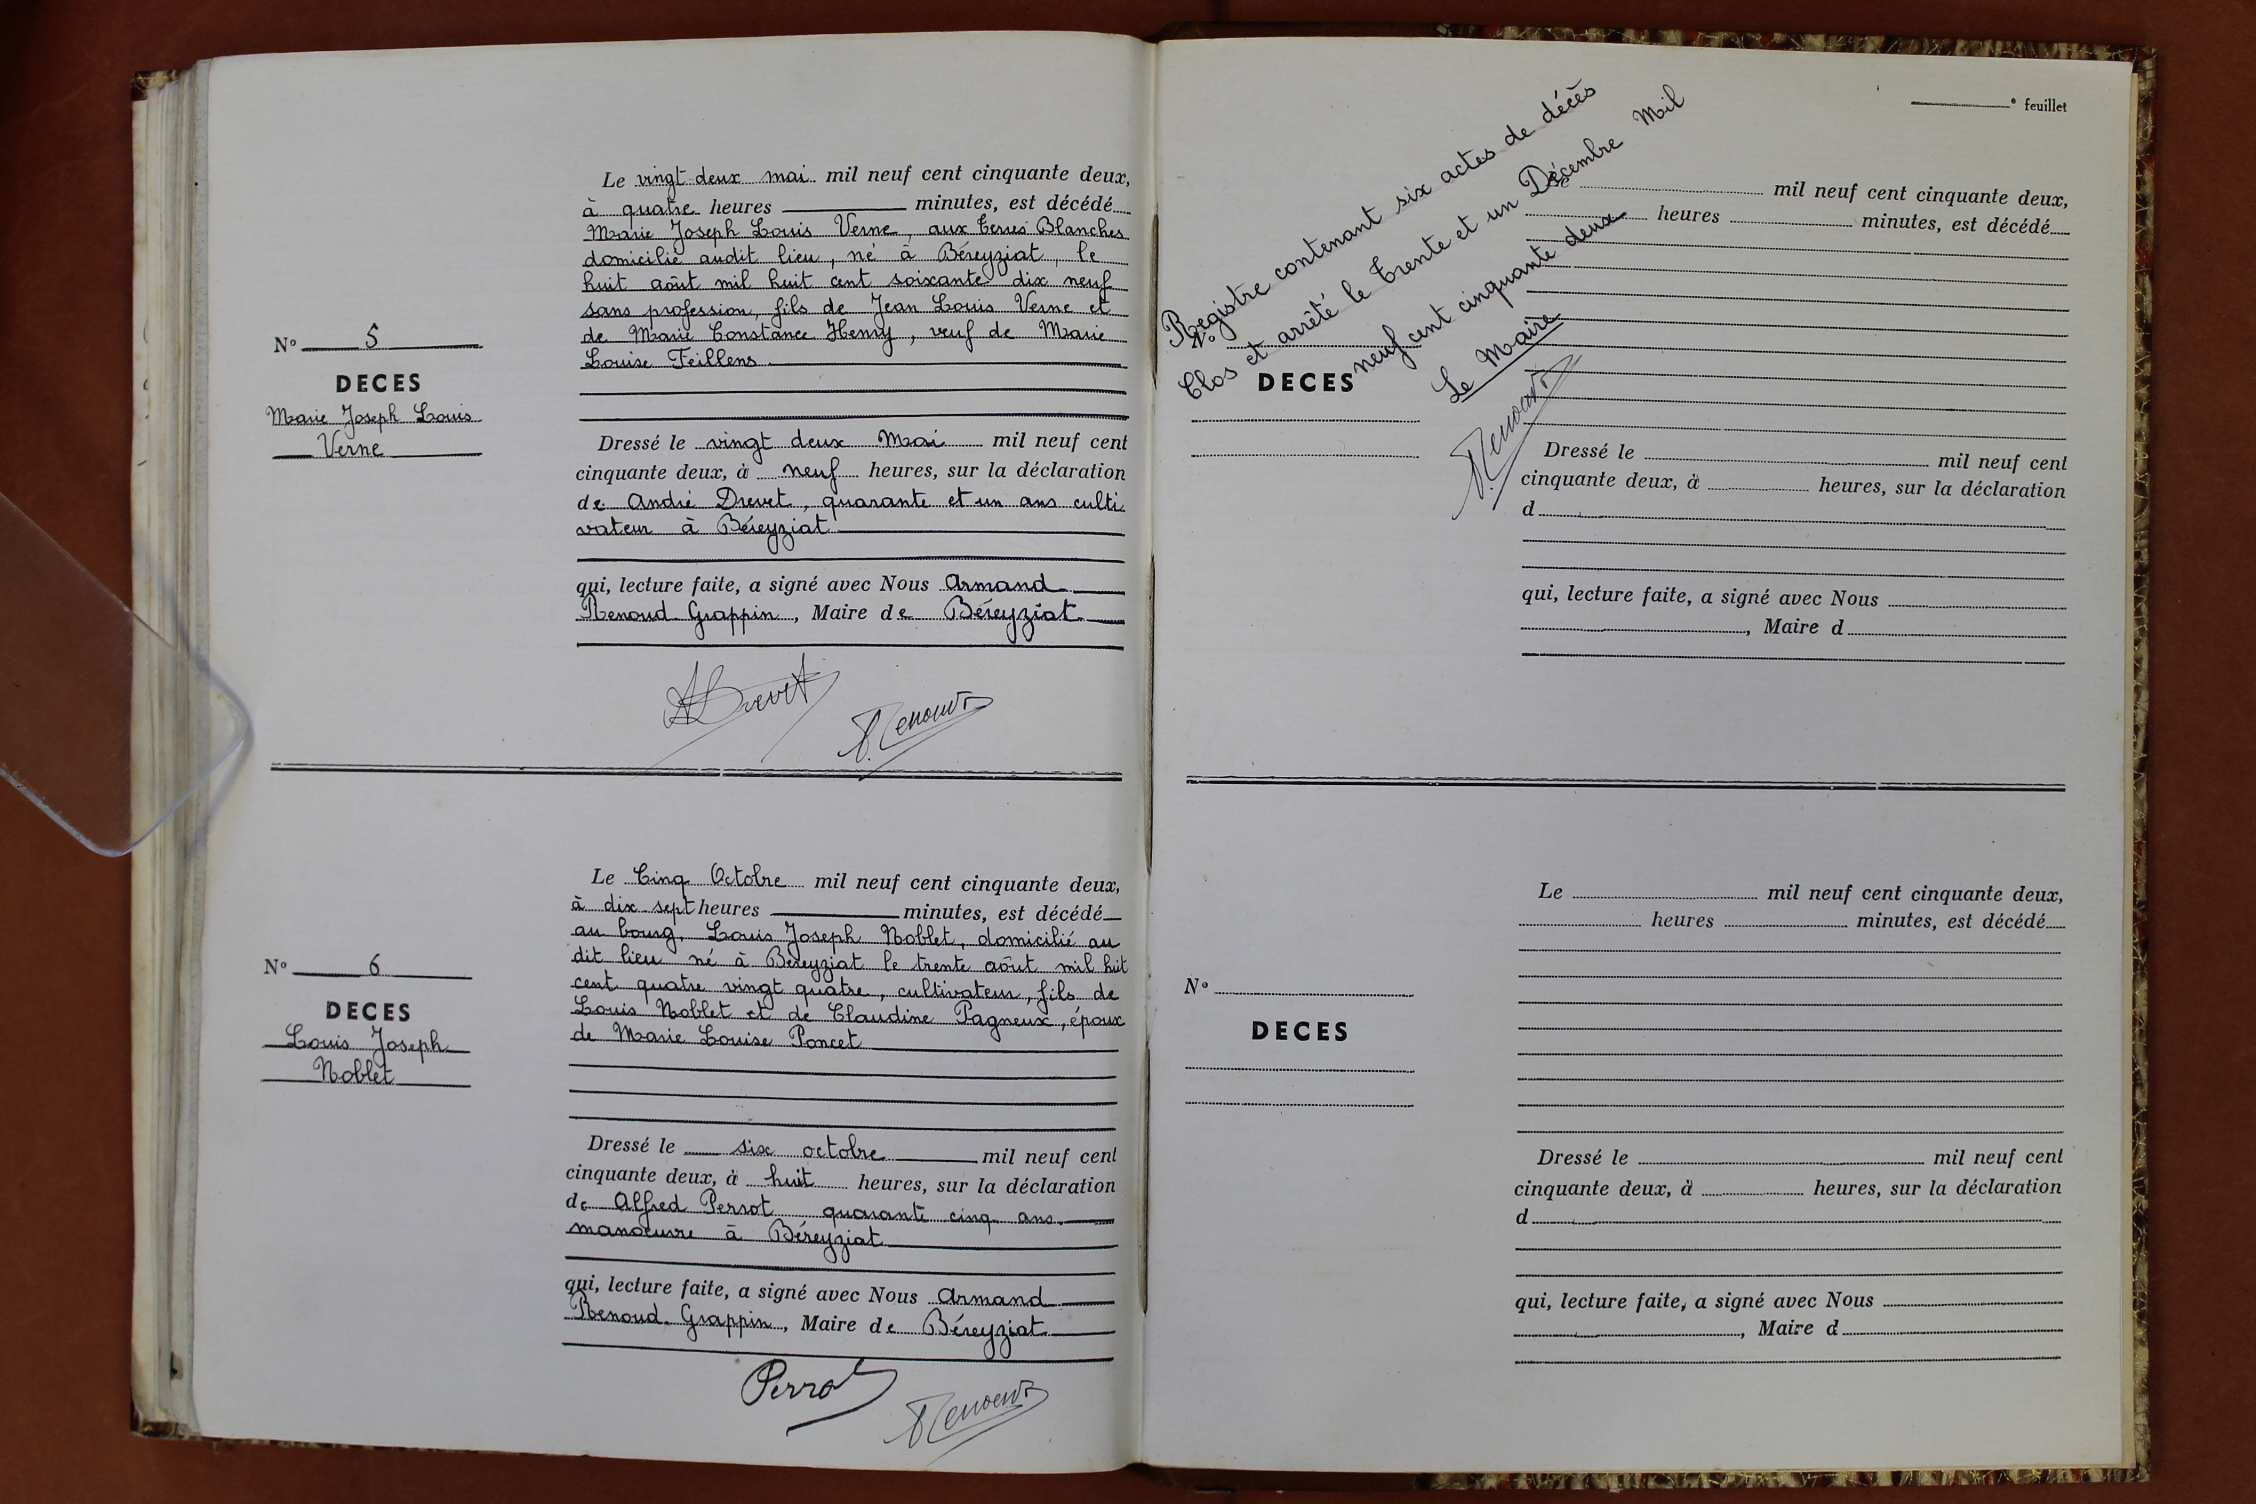 Le vingt deux mai mil neuf cent cinquante deux,
à quatre heures minutes, est décédé
Marie Joseph Louis Verne, aux Terres Blanches
domicilié audit lieu, né à Béreyziat, le
huit août mil huit cent soixante dix neuf
sans profession, fils de Jean Louis Verne et
de Marie Constance Henry, veuf de Marie
Louise Feillens
N° 5
DECES
Marie Joseph Louis
Verne
Dressé le vingt deux Mai mil neuf cent
cinquante deux, à neuf heures, sur la déclaration
de André Drevet, quarante et un ans culti
vateur à Béreyziat
qui, lecture faite, a signé avec Nous Armand
Renoud-Grappin, Maire de Béreyziat
ADrevet
A.Renoud
Le Cinq Octobre mil neuf cent cinquante deux,
à dix sept heures minutes, est décédé
au bourg, Louis Joseph Noblet, domicilié au
dit lieu né à Béreyziat le trente août mil huit
cent quatre vingt quatre, cultivateur, fils de
Louis Noblet et de Claudine Pagneux, époux
de Marie Louise Poncet
N° 6
DECES
Louis Joseph
Noblet
Dressé le six octobre mil neuf cent
cinquante deux, à huit heures, sur la déclaration
de Alfred Perrot quarante cinq ans
manœuvre à Béreyziat
qui, lecture faite, a signé avec Nous Armand
Renoud-Grappin, Maire de Béreyziat
Perrot
A.Renoud
° feuillet
Registre contenant six actes de décès
Clos et arrêté le Trente et un Décembre Mil
neuf cent cinquante deux
Le Maire
A.Renoud
Le mil neuf cent cinquante deux,
heures minutes, est décédé
N°
DECES
Dressé le mil neuf cent
cinquante deux, à heures, sur la déclaration
d
qui, lecture faite, a signé avec Nous
, Maire d
Le mil neuf cent cinquante deux,
heures minutes, est décédé
N°
DECES
Dressé le mil neuf cent
cinquante deux, à heures, sur la déclaration
d
qui, lecture faite, a signé avec Nous
, Maire d